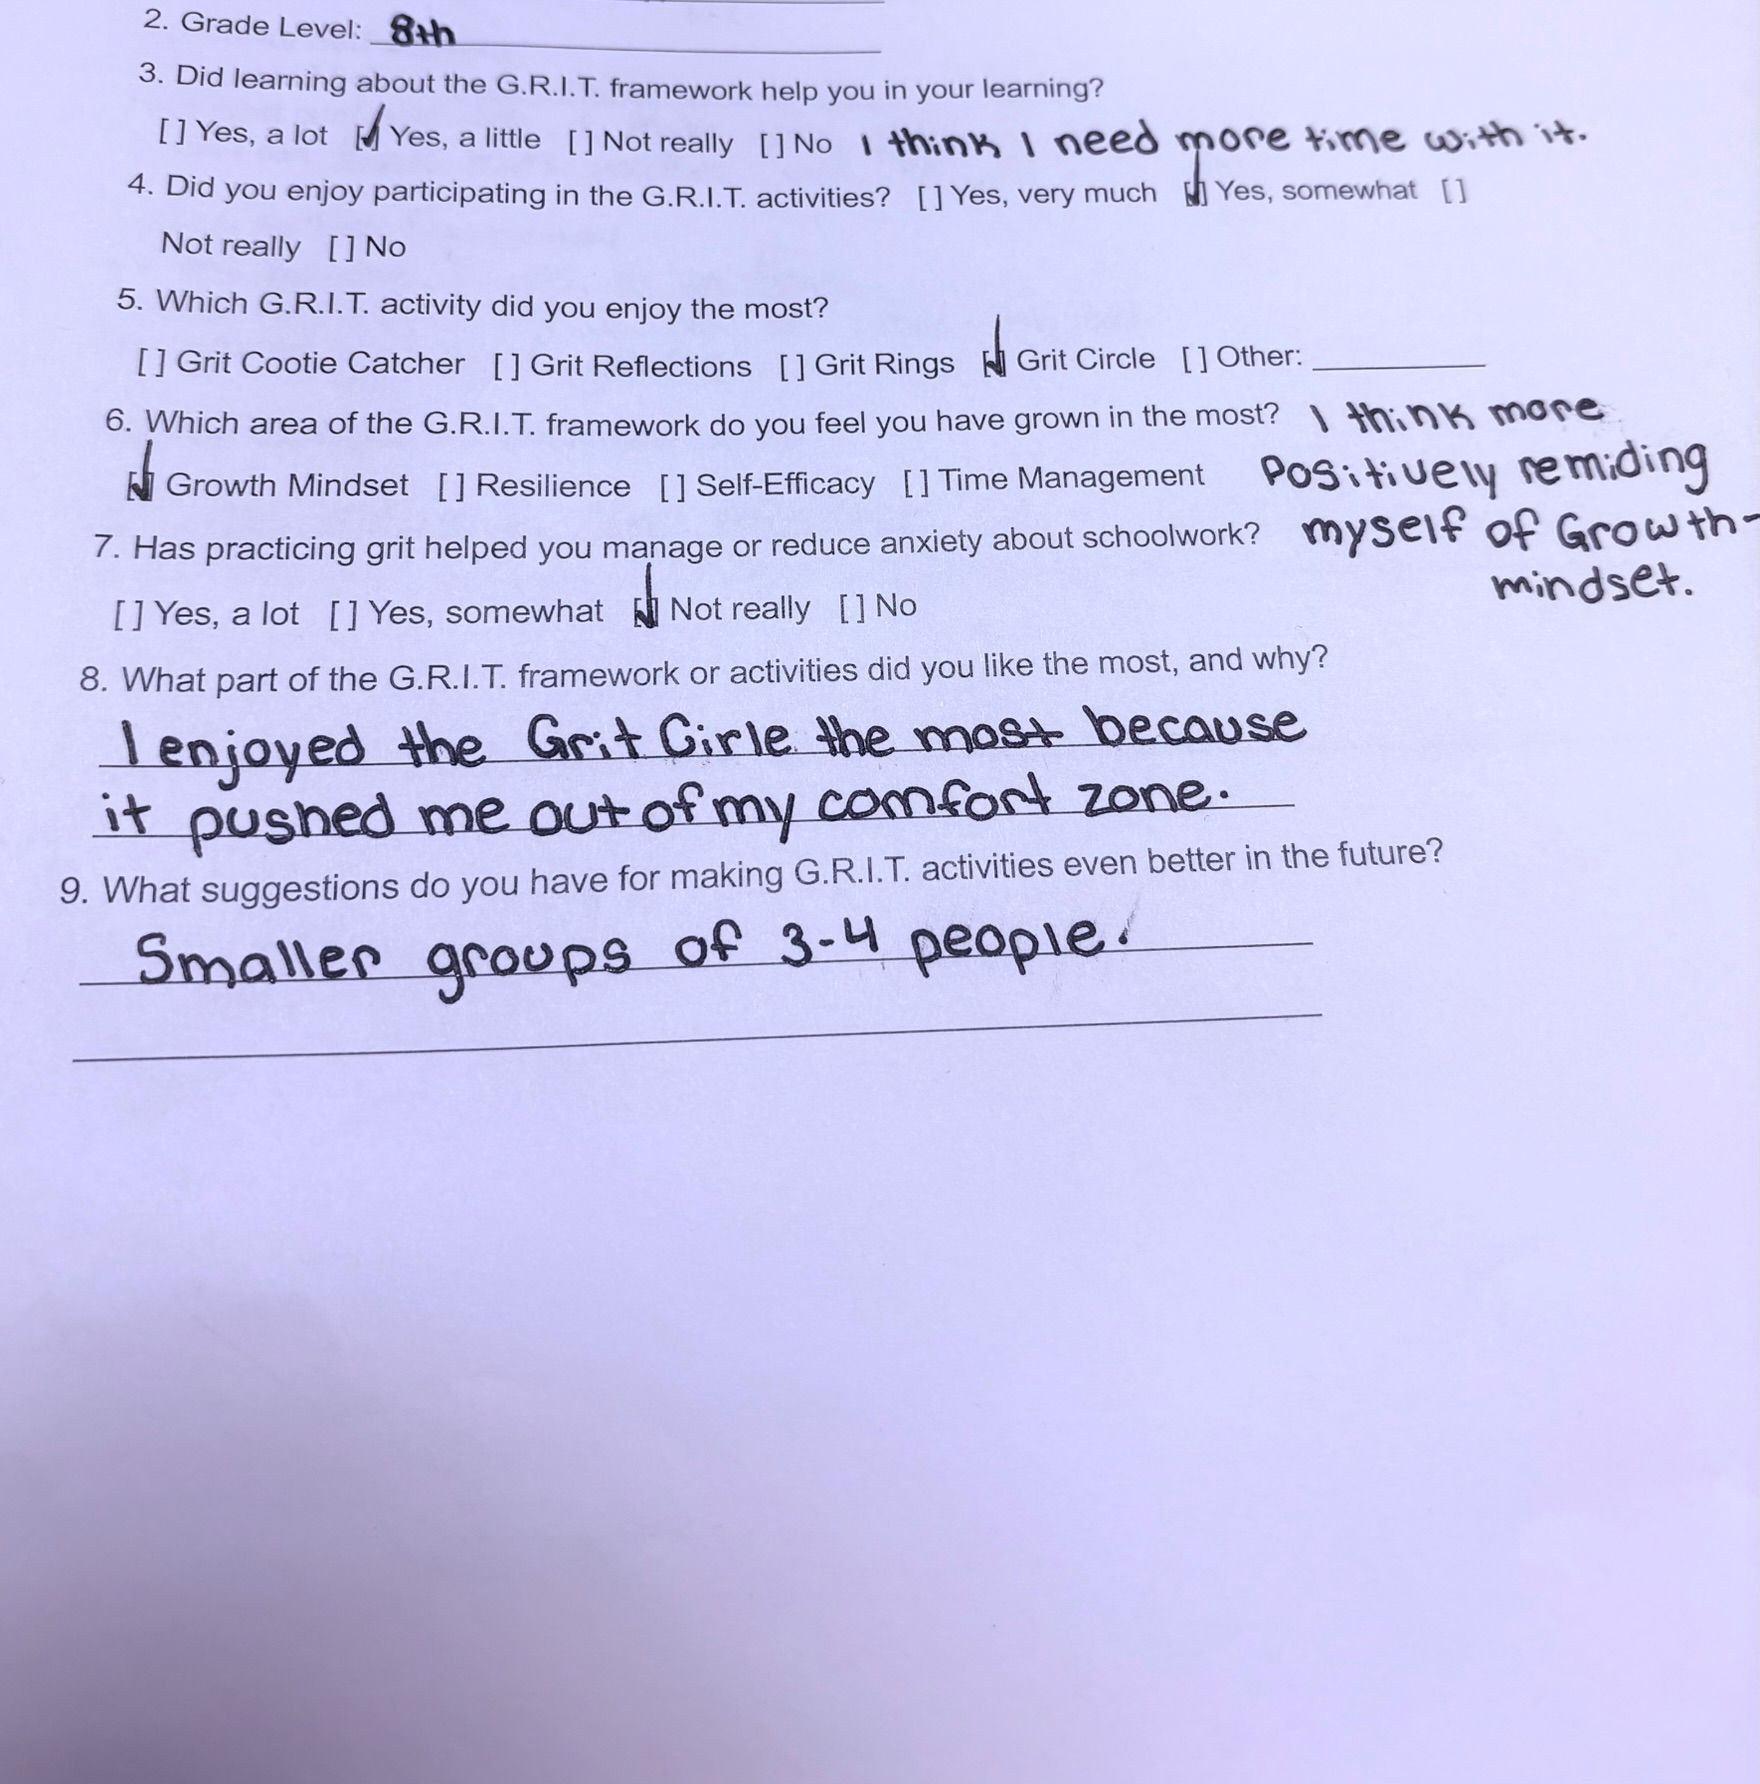 2. Grade Level: 8th
3. Did learning about the G.R.I.T. framework help you in your learning?
[ ] Yes, a lot [✓] Yes, a little [ ] Not really [ ] No I think I need more time with it.
4. Did you enjoy participating in the G.R.I.T. activities? [ ] Yes, very much [✓] Yes, somewhat [ ]
Not really [ ] No
5. Which G.R.I.T. activity did you enjoy the most?
[ ] Grit Cootie Catcher [ ] Grit Reflections [ ] Grit Rings [✓] Grit Circle [ ] Other:
6. Which area of the G.R.I.T. framework do you feel you have grown in the most? I think more
[✓] Growth Mindset [ ] Resilience [ ] Self-Efficacy [ ] Time Management Positively remiding
7. Has practicing grit helped you manage or reduce anxiety about schoolwork? myself of Growth-
mindset.
[ ] Yes, a lot [ ] Yes, somewhat [✓] Not really [ ] No
8. What part of the G.R.I.T. framework or activities did you like the most, and why?
I enjoyed the Grit Cirle the most because
it pushed me out of my comfort zone.
9. What suggestions do you have for making G.R.I.T. activities even better in the future?
Smaller groups of 3-4 people.